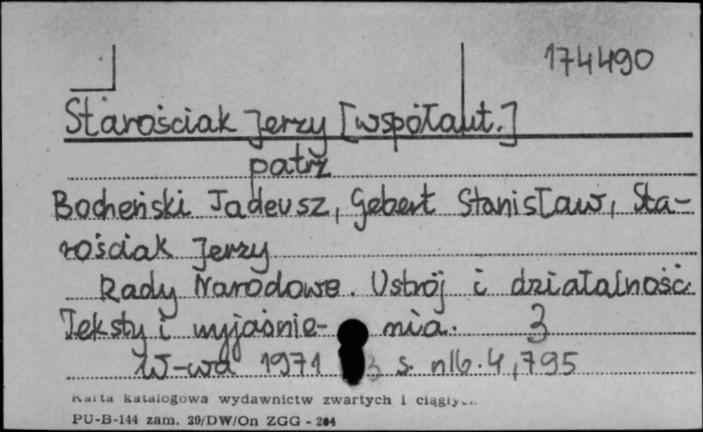 174490
Starościak Jerzy [współaut.]
patrz
Bocheński Tadeusz, Gebert Stanisław, Sta-
rościak Jerzy
Rady Narodowe. Ustrój i działalność.
Teksty i wyjaśnie- nia. 3
W-wa 1971 s. nlb. 4, 795
Karta katalogowa wydawnictw zwartych i ciągłych
PU-B-144 zam. 29/DW/On ZGG - 204